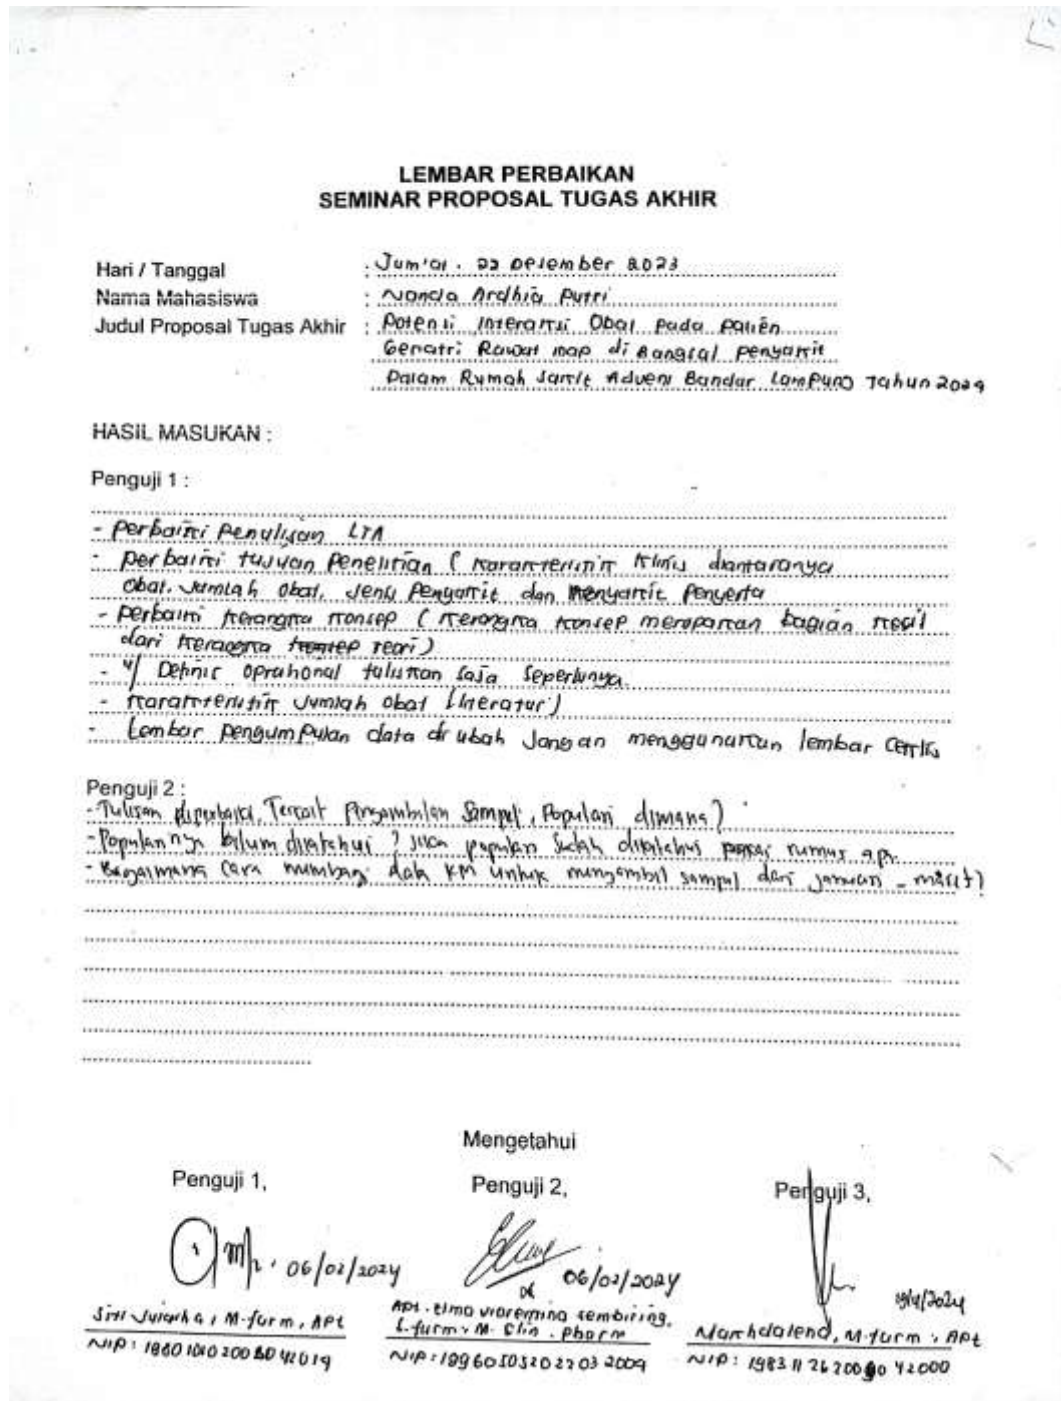 LEMBAR PERBAIKAN
SEMINAR PROPOSAL TUGAS AKHIR
Hari / Tanggal : Jum'at. 22 Desember 2023
Nama Mahasiswa : Nanda Ardhia Putri
Judul Proposal Tugas Akhir : Potensi Interaksi Obat Pada Pasien
Geriatri Rawat inap di Bangsal penyakit
Dalam Rumah Sakit Advent Bandar Lampung Tahun 2024
HASIL MASUKAN :
Penguji 1 :
- Perbaiki Penulisan LTA
- perbaiki tujuan Penelitian ( karakteristik klinis diantaranya
obat, Jumlah obat, Jenis Penyakit dan Menyakit Penyerta
- Perbaiki kerangka konsep ( kerangka konsep merupakan bagian kecil
dari kerangka konsep teori )
- Definir oprahonal tuliskan saja seperlunya.
- karakteristik Jumlah obat (literatur)
- Lembar pengumpulan data di ubah Jangan menggunakan lembar ceklis
Penguji 2 :
- Tulisan diperbaiki, Terkait Pengambilan Sampel, Populasi dimana ?
- Populasinya belum diketahui ? Jika populasi sudah diketahui pakai rumus apa.
- Bagaimana cara membagi data RM untuk mengambil sampel dari januari - maret ?
Mengetahui
Penguji 1,
Penguji 2,
Penguji 3,
06/02/2024
06/02/2024
/2024
Siti Julaikha, M.farm, Apt
Apt. elma viorentina sembiring,
S.farm, M. Clin. Pharm
Marhdalena, M.farm, Apt
NIP:
NIP: 199605052022032009
NIP: